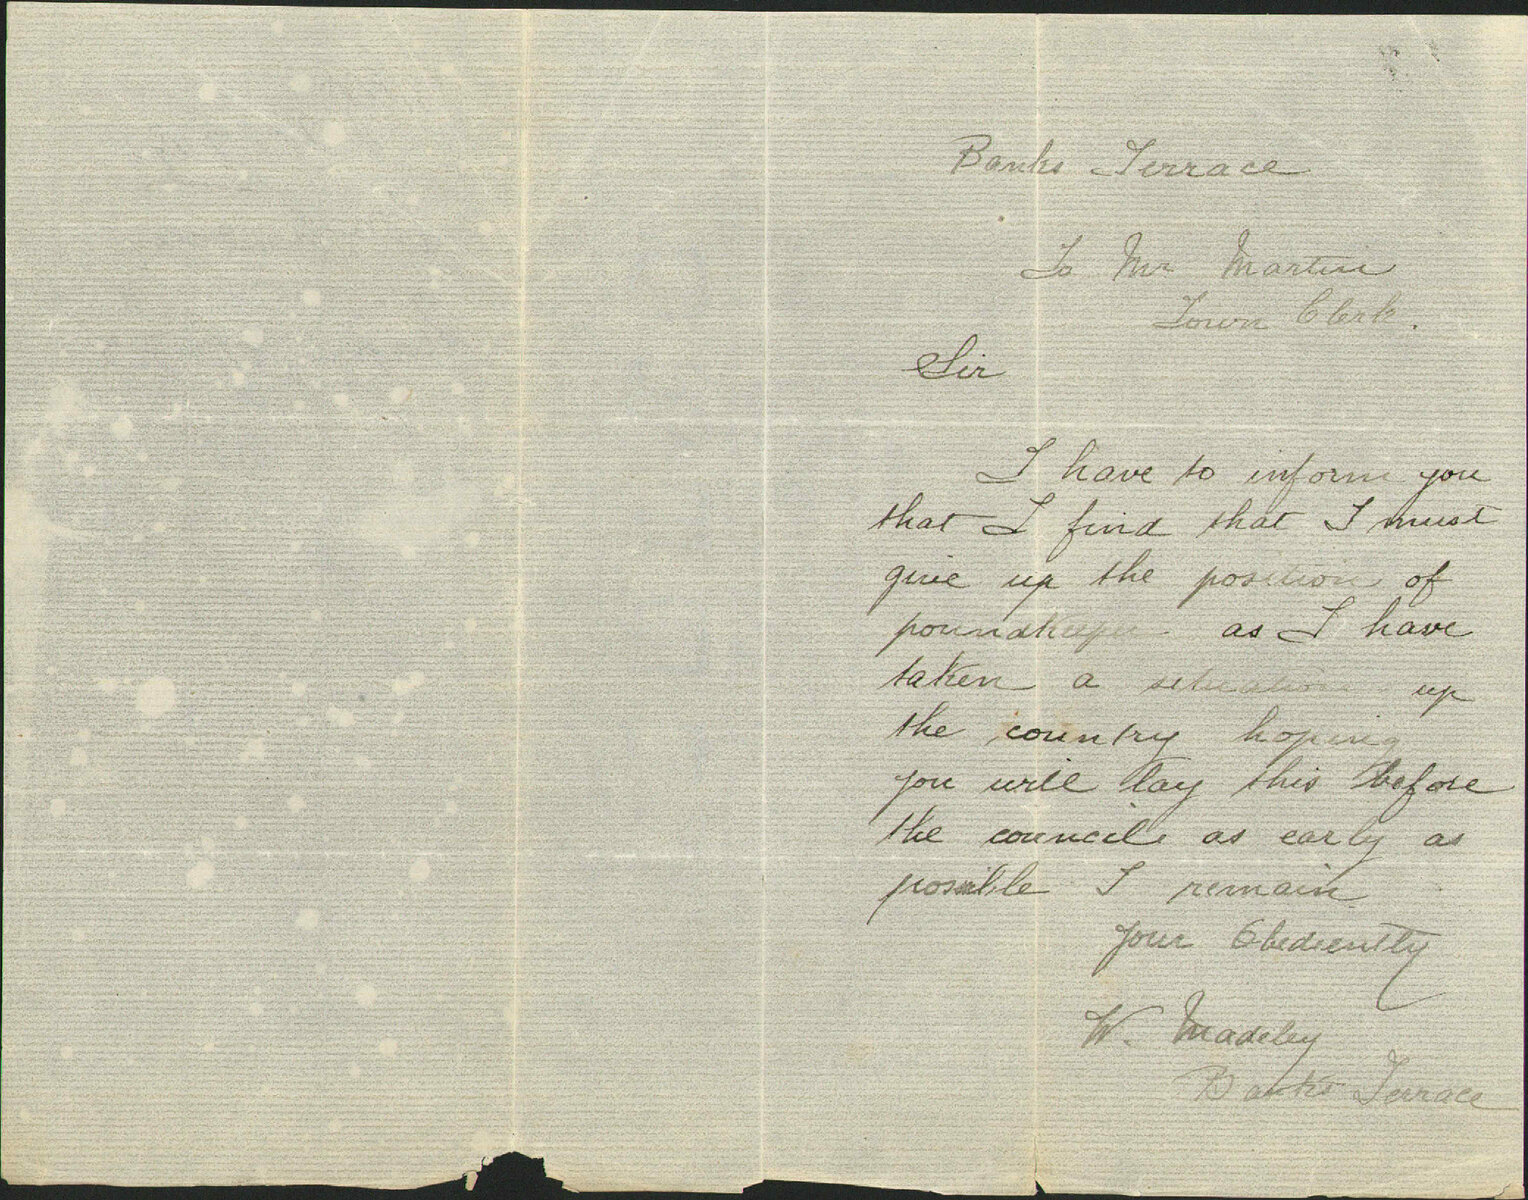 Banks Terrace
To Mr Martin
Town Clerk.
Sir
I have to inform you
that I find that I must
give up the position of
poundkeeper as I have
taken a situation up
the country hoping
you will lay this before
the council as early as
possible I remain
your Obediently
W. Madeley
Banks Terrace